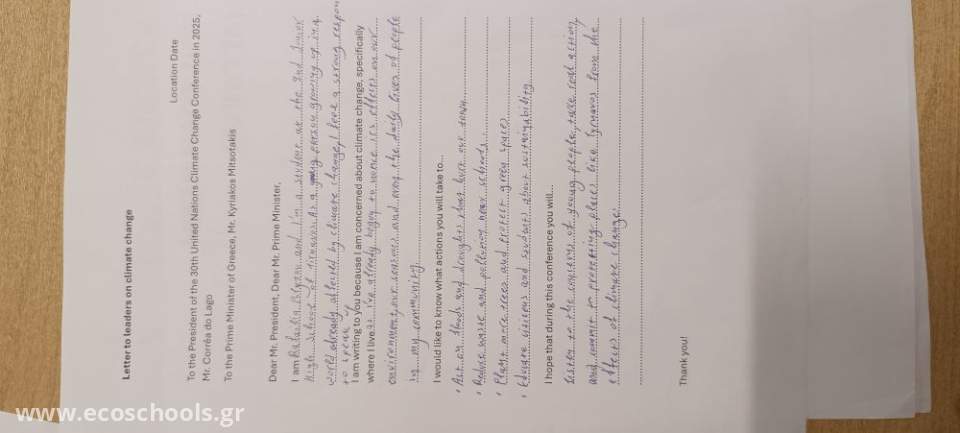 Letter to leaders on climate change
Location Date
To the President of the 30th United Nations Climate Change Conference in 2025,
Mr. Corrêa do Lago
To the Prime Minister of Greece, Mr. Kyriakos Mitsotakis
Dear Mr. President, Dear Mr. Prime Minister,
I am and I'm a student at the 2nd Junior
High School of Tirnavos. As a young person growing up in a
world already affected by climate change, I feel a strong
to speak up
I am writing to you because I am concerned about climate change, specifically
where I live as I've already begun to notice it's effects on our
environment, our and even the daily lives of people
in my community
I would like to know what actions you will take to...
• Act on floods and droughts that hurt our town
• Reduce waste and pollution near schools
• Plant more trees and protect green spaces
• Educate citizens and students about sustainability
I hope that during this conference you will...
listen to the concerns of young people, take real action
and commit to protecting places like Tyrnavos from the
effects of climate change.
Thank you!
www.ecoschools.gr